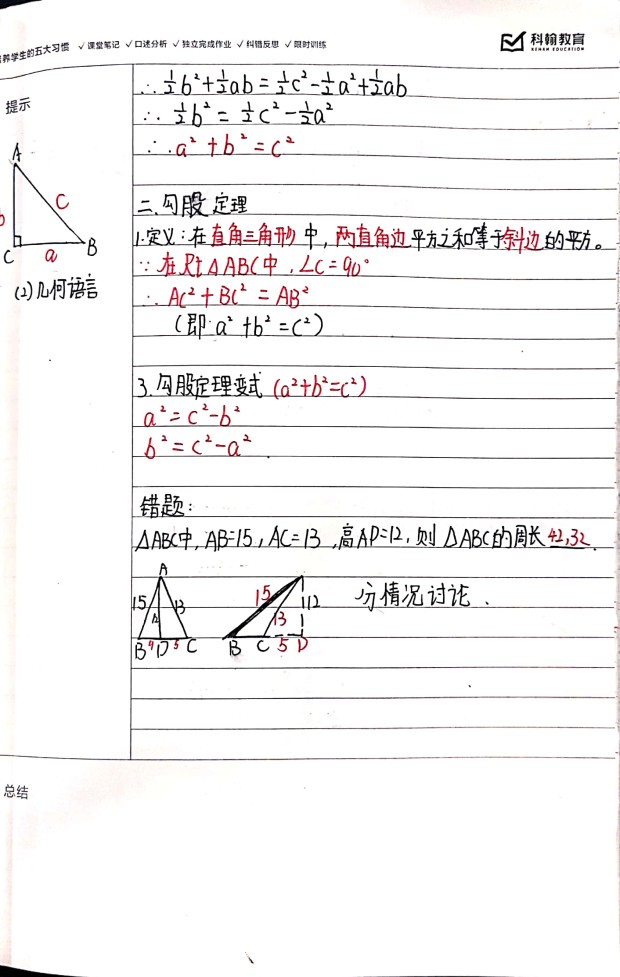 养学生的五大习惯 √课堂笔记 √口述分析 √独立完成作业 √纠错反思 √限时训练
科翰教育
KEHAN EDUCATION
∴ ½b²+½ab=½c²-½a²+½ab
∴ ½b²=½c²-½a²
∴ a²+b²=c²
提示
A
b
c
C
a
B
(2)几何语言
二.勾股定理
1.定义:在直角三角形中,两直角边平方之和等于斜边的平方。
∵ 在Rt△ABC中,∠C=90°
∴ AC²+BC²=AB²
(即:a²+b²=c²)
3.勾股定理变式(a²+b²=c²)
a²=c²-b²
b²=c²-a².
错题:
△ABC中,AB=15,AC=13,高AD=12,则△ABC的周长42,32.
A
15
13
B
D
5
C
15
12
13
B
C
5
D
分情况讨论.
总结